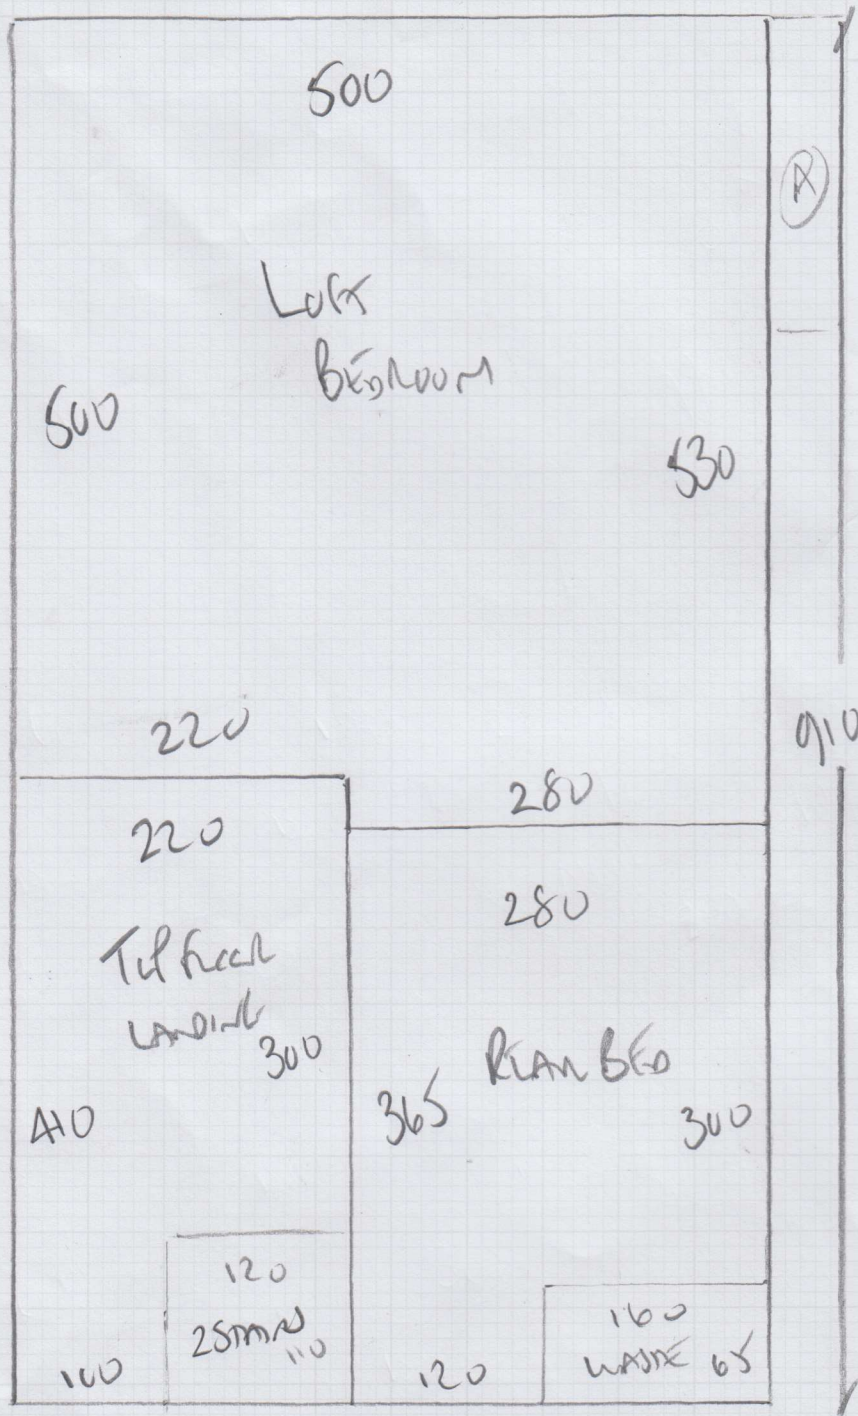 500
A
LOFT
BEDROOM
500
530
220
910
280
220
280
TOP FLOOR
LANDING
300
REAR BED
410
365
300
120
2 STAIRS
110
160
WASTE 65
100
120